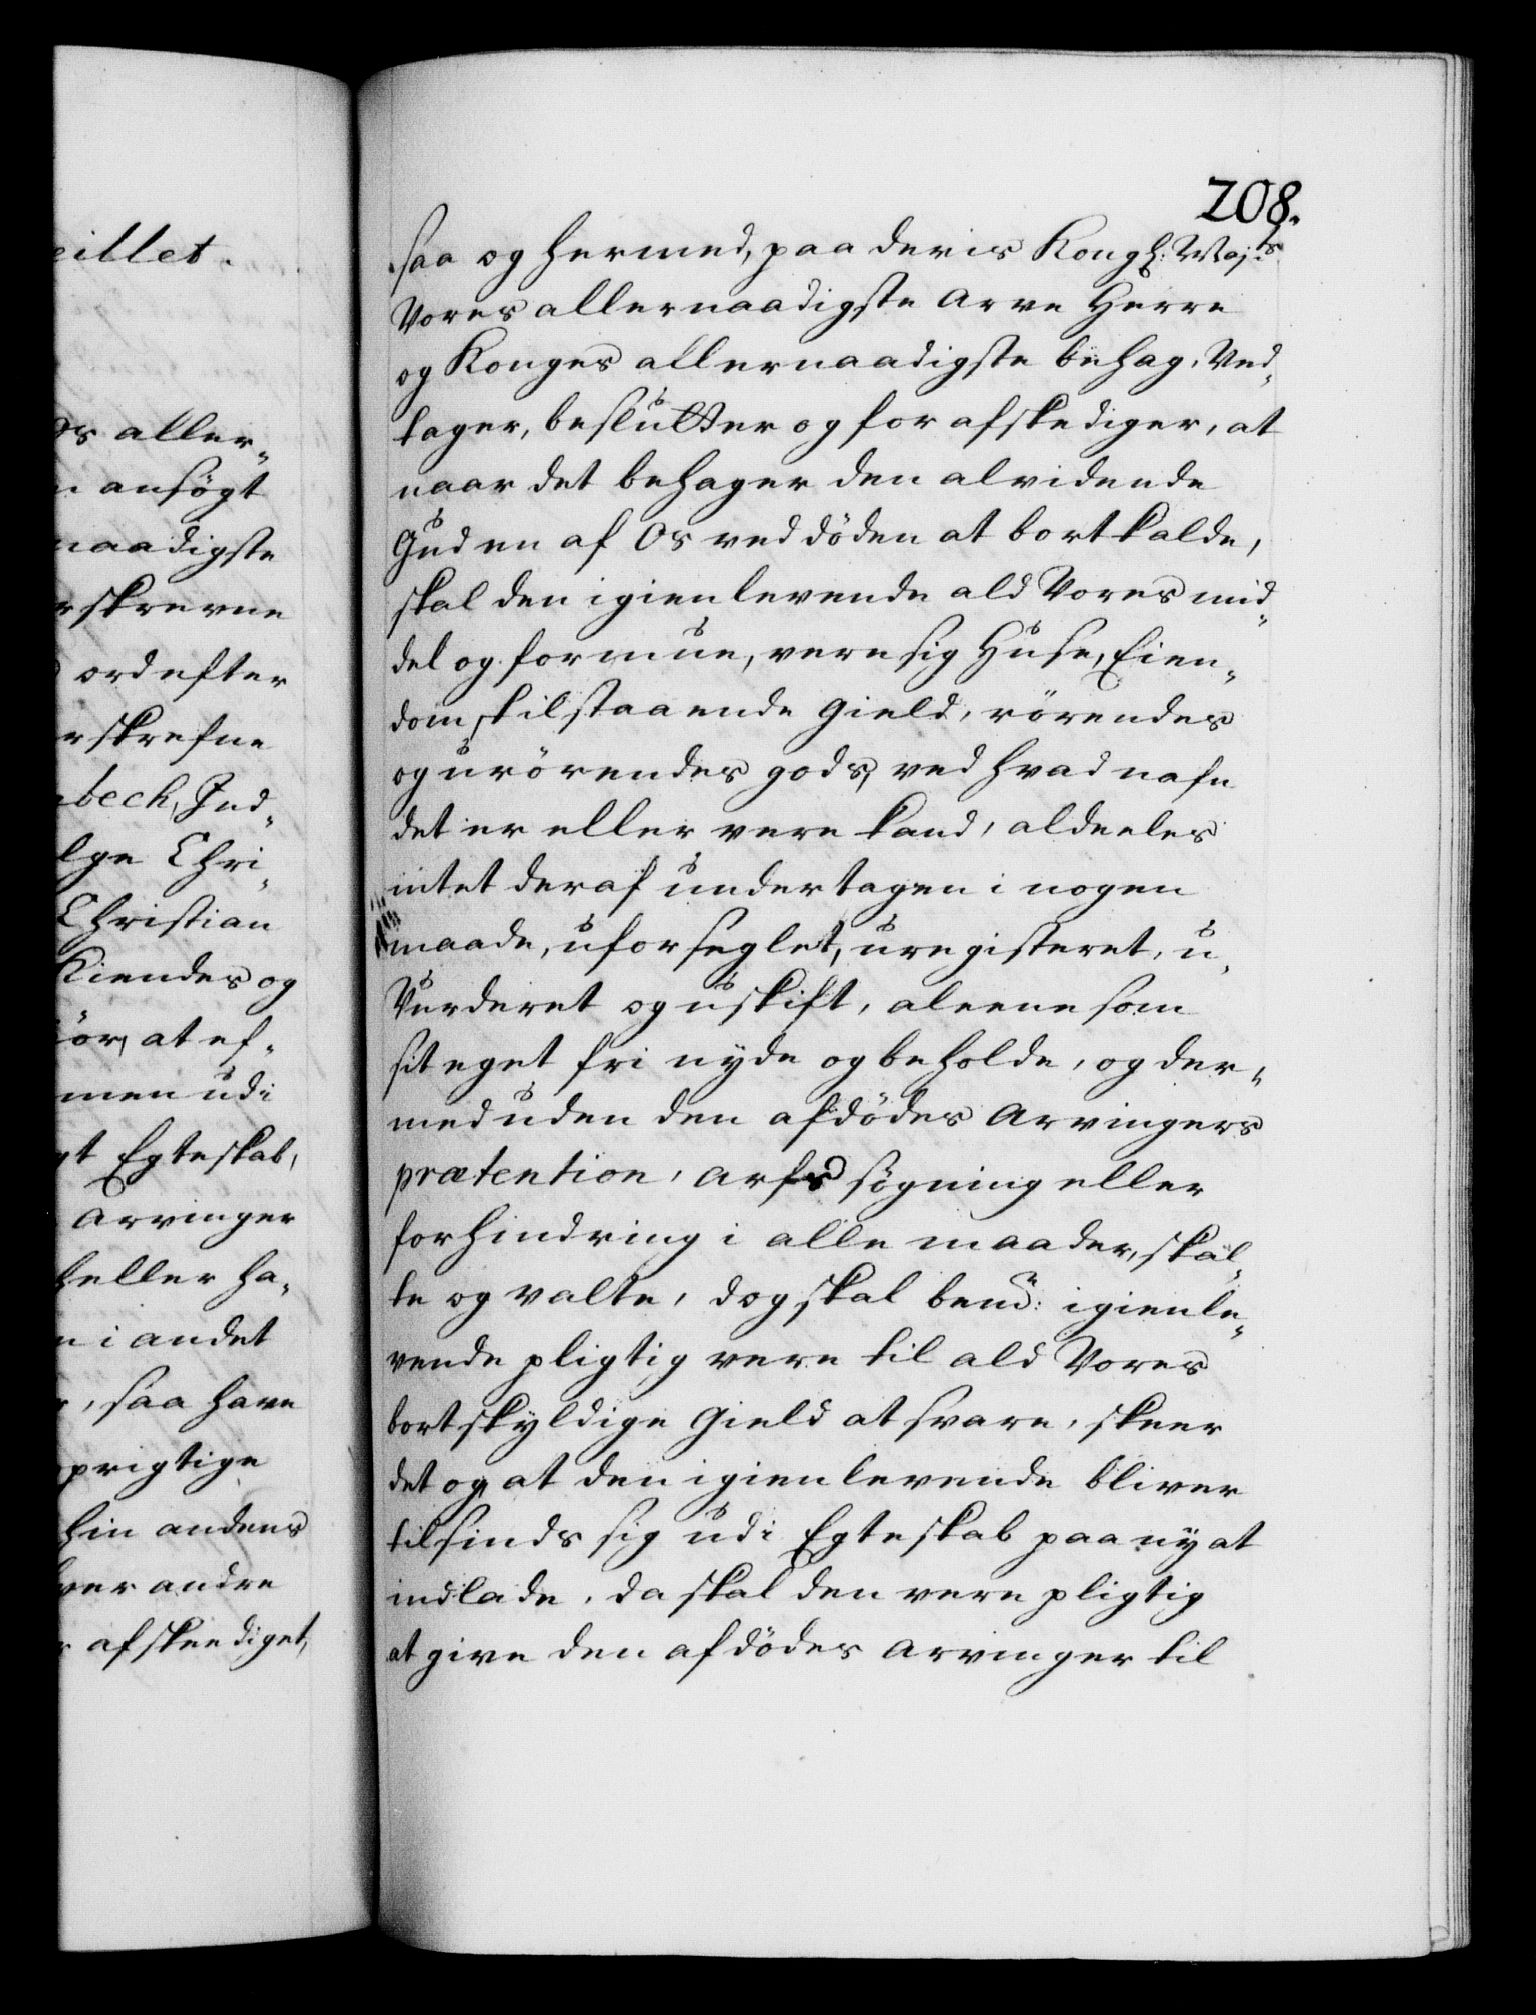 eillet.
ds aller„
n ansøgt
naadigste
rskrevne
ord efter
rskrefne
bech, Ind„
lge Chri„
Christian
Kiendes og
ör, at ef„
men udi
gt Egteskab,
Arvinger
heller ha„
n i andet
, saa have
oprigtige
hin andens
ver andre
afskeediget,
208.
saa og hermed, paa deris Kongl: Maj:ts
Vores allernaadigste Arve Herre
og Konges allernaadigste behag, Ved„
tager, beslutter og for afskediger, at
naar det behager den alvidende
Gud en af Os ved döden at bortkalde,
skal den igienlevende ald Vores mid„
del og formue, vere sig Huse, Eien„
dom, tilstaaende Gield, rörendes
og urörendes gods, ved hvad nafn
det er eller vere kand, aldeeles
intet deraf undertagen i nogen
maade, uforseglet, uregisteret, u„
Vurderet og uskift, aleene som
sit eget fri nyde og beholde, og der„
med uden den afdödes Arvingers
prætention, arfs søgning eller
forhindring i alle maader, skal„
te og valte, dog skal bem:te igienle„
vende pligtig vere til ald Vores
bortskyldige Gield at svare, skeer
det og at den igienlevende bliver
tilsinds sig udi Egteskab paa ny at
indlade, da skal den vere pligtig
at give den afdödes Arvinger til